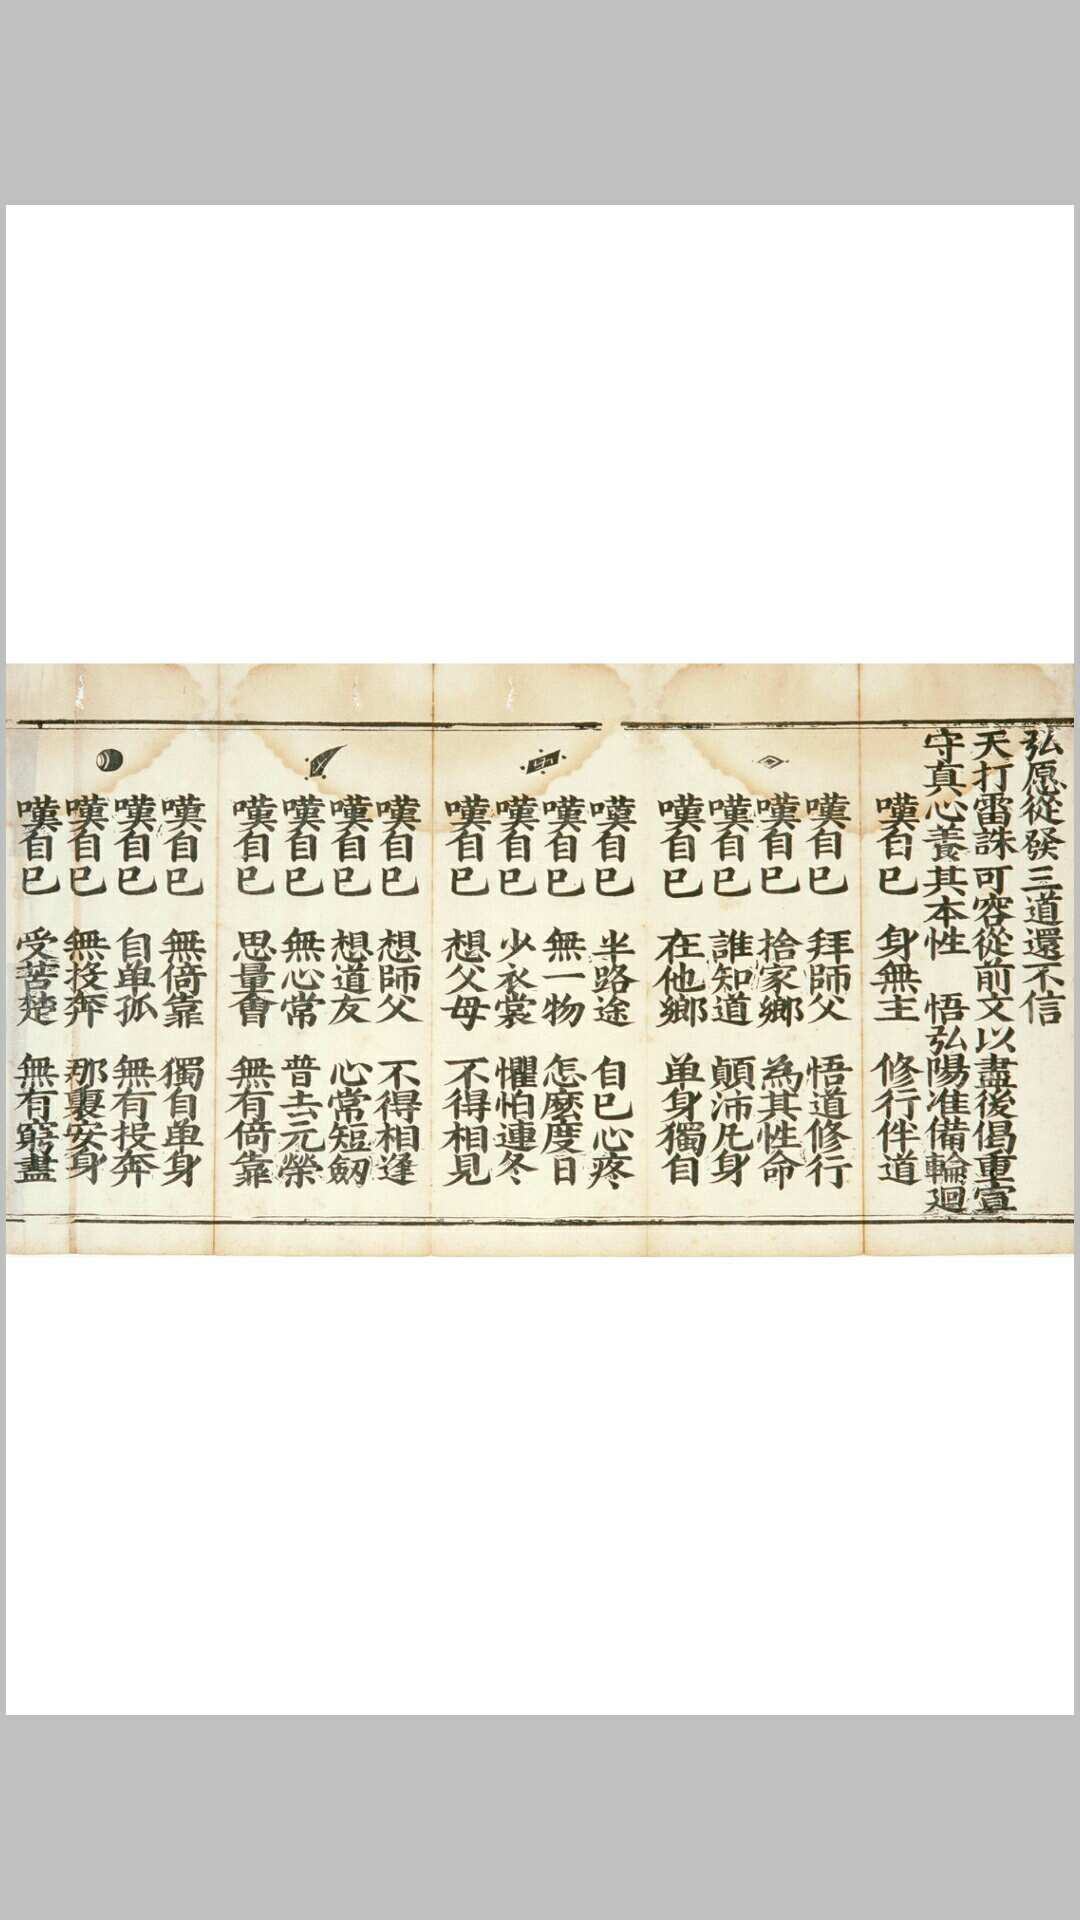 弘愿從發三道還不信
天打雷誅可容從前文以盡後偈重宣
守真心養其本性　悟弘陽准備輪廻
嘆自己　身無主　修行伴道
嘆自己　拜師父　悟道修行
嘆自己　捨家鄉　為其性命
嘆自己　誰知道　顛沛凡身
嘆自己　在他鄉　单身獨自
嘆自己　半路途　自己心疼
嘆自己　無一物　怎麼度日
嘆自己　少衣裳　懼怕連冬
嘆自己　想父母　不得相見
嘆自己　想師父　不得相逢
嘆自己　想道友　心常短劒
嘆自己　無心常　普去元榮
嘆自己　思量會　無有倚靠
嘆自己　無倚靠　獨自单身
嘆自己　自单孤　無有投奔
嘆自己　無投奔　那裏安身
嘆自己　受苦楚　無有窮盡